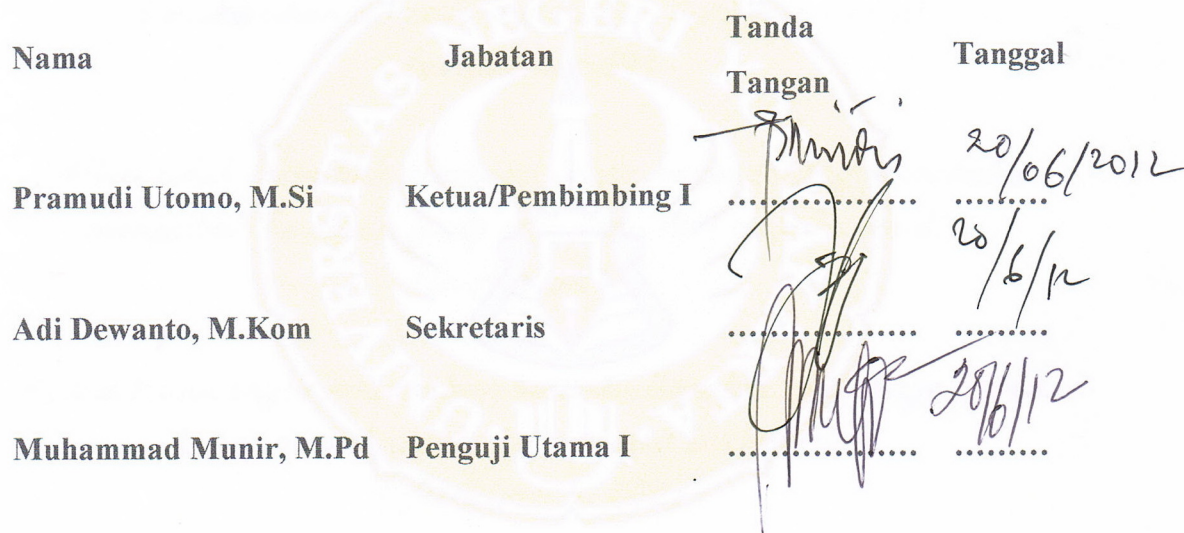 Nama Jabatan Tanda Tangan Tanggal
Pramudi Utomo, M.Si Ketua/Pembimbing I .................. 20/06/2012
Adi Dewanto, M.Kom Sekretaris .................. 20/6/12
Muhammad Munir, M.Pd Penguji Utama I .................. 20/6/12
UNIVERSITAS NEGERI